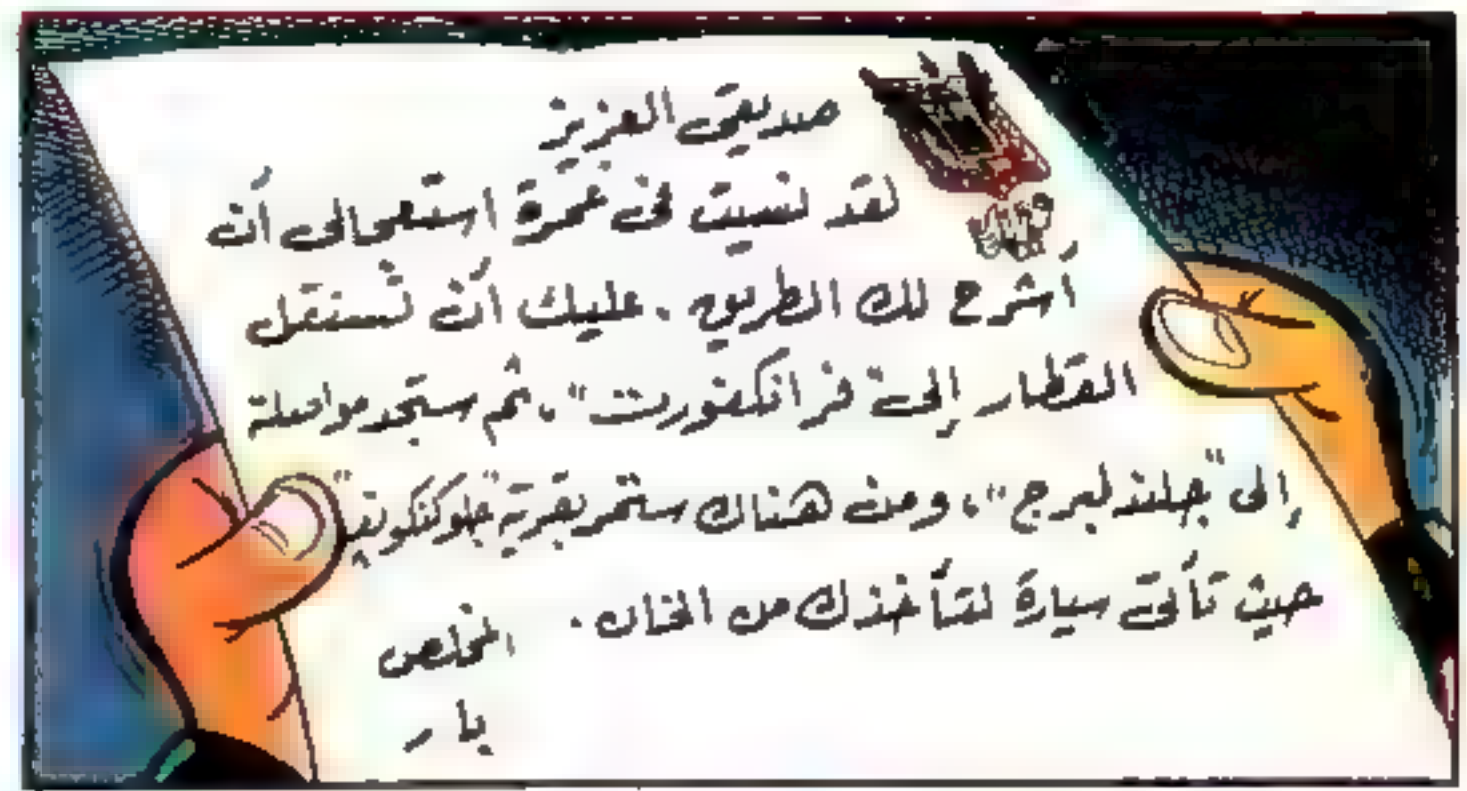 صديقى العزيز
لقد نسيت فى غمرة استعجالى أن
أشرح لك الطريق . عليك أن تستقل
القطار إلى "فرانكفورت"، ثم ستجد مواصلة
إلى "جلندلبرج"، ومن هناك ستمر بقرية
حيث تأتى سيارة لتأخذك من الخان .
المخلص
بار